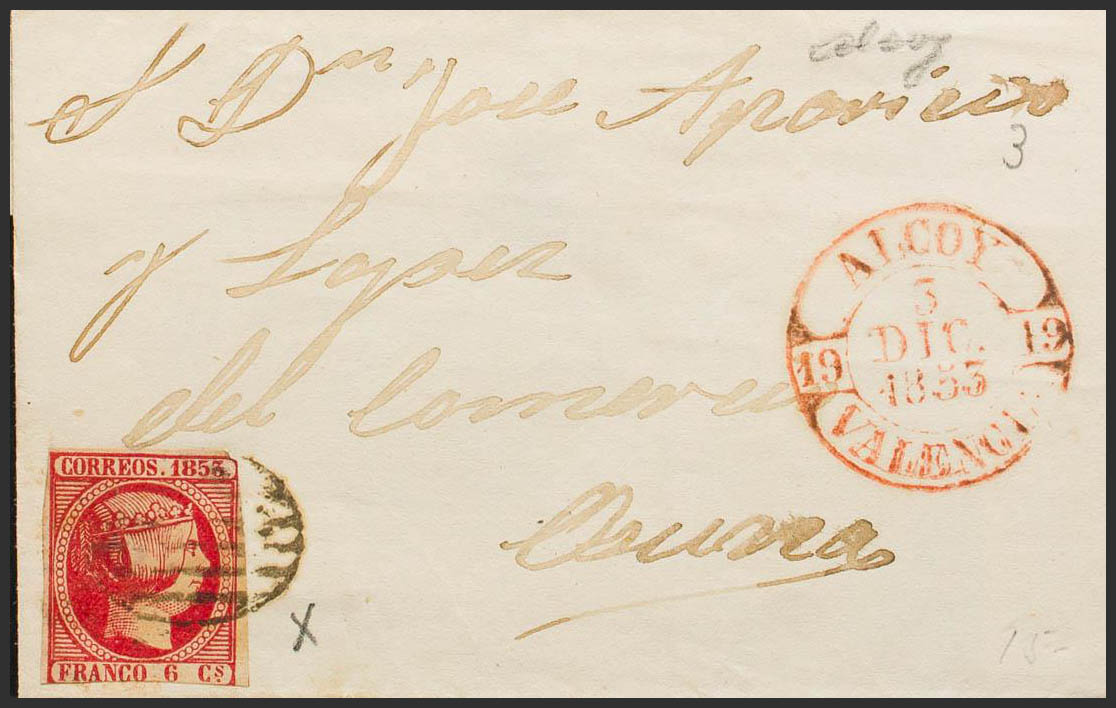 S Dn Jose Aparicio
3
y Lopez
del Comercio
ALCOY
3
DIC.
1853
19 19
VALENCIA
CORREOS. 1853
FRANCO 6 Cs
X
15-